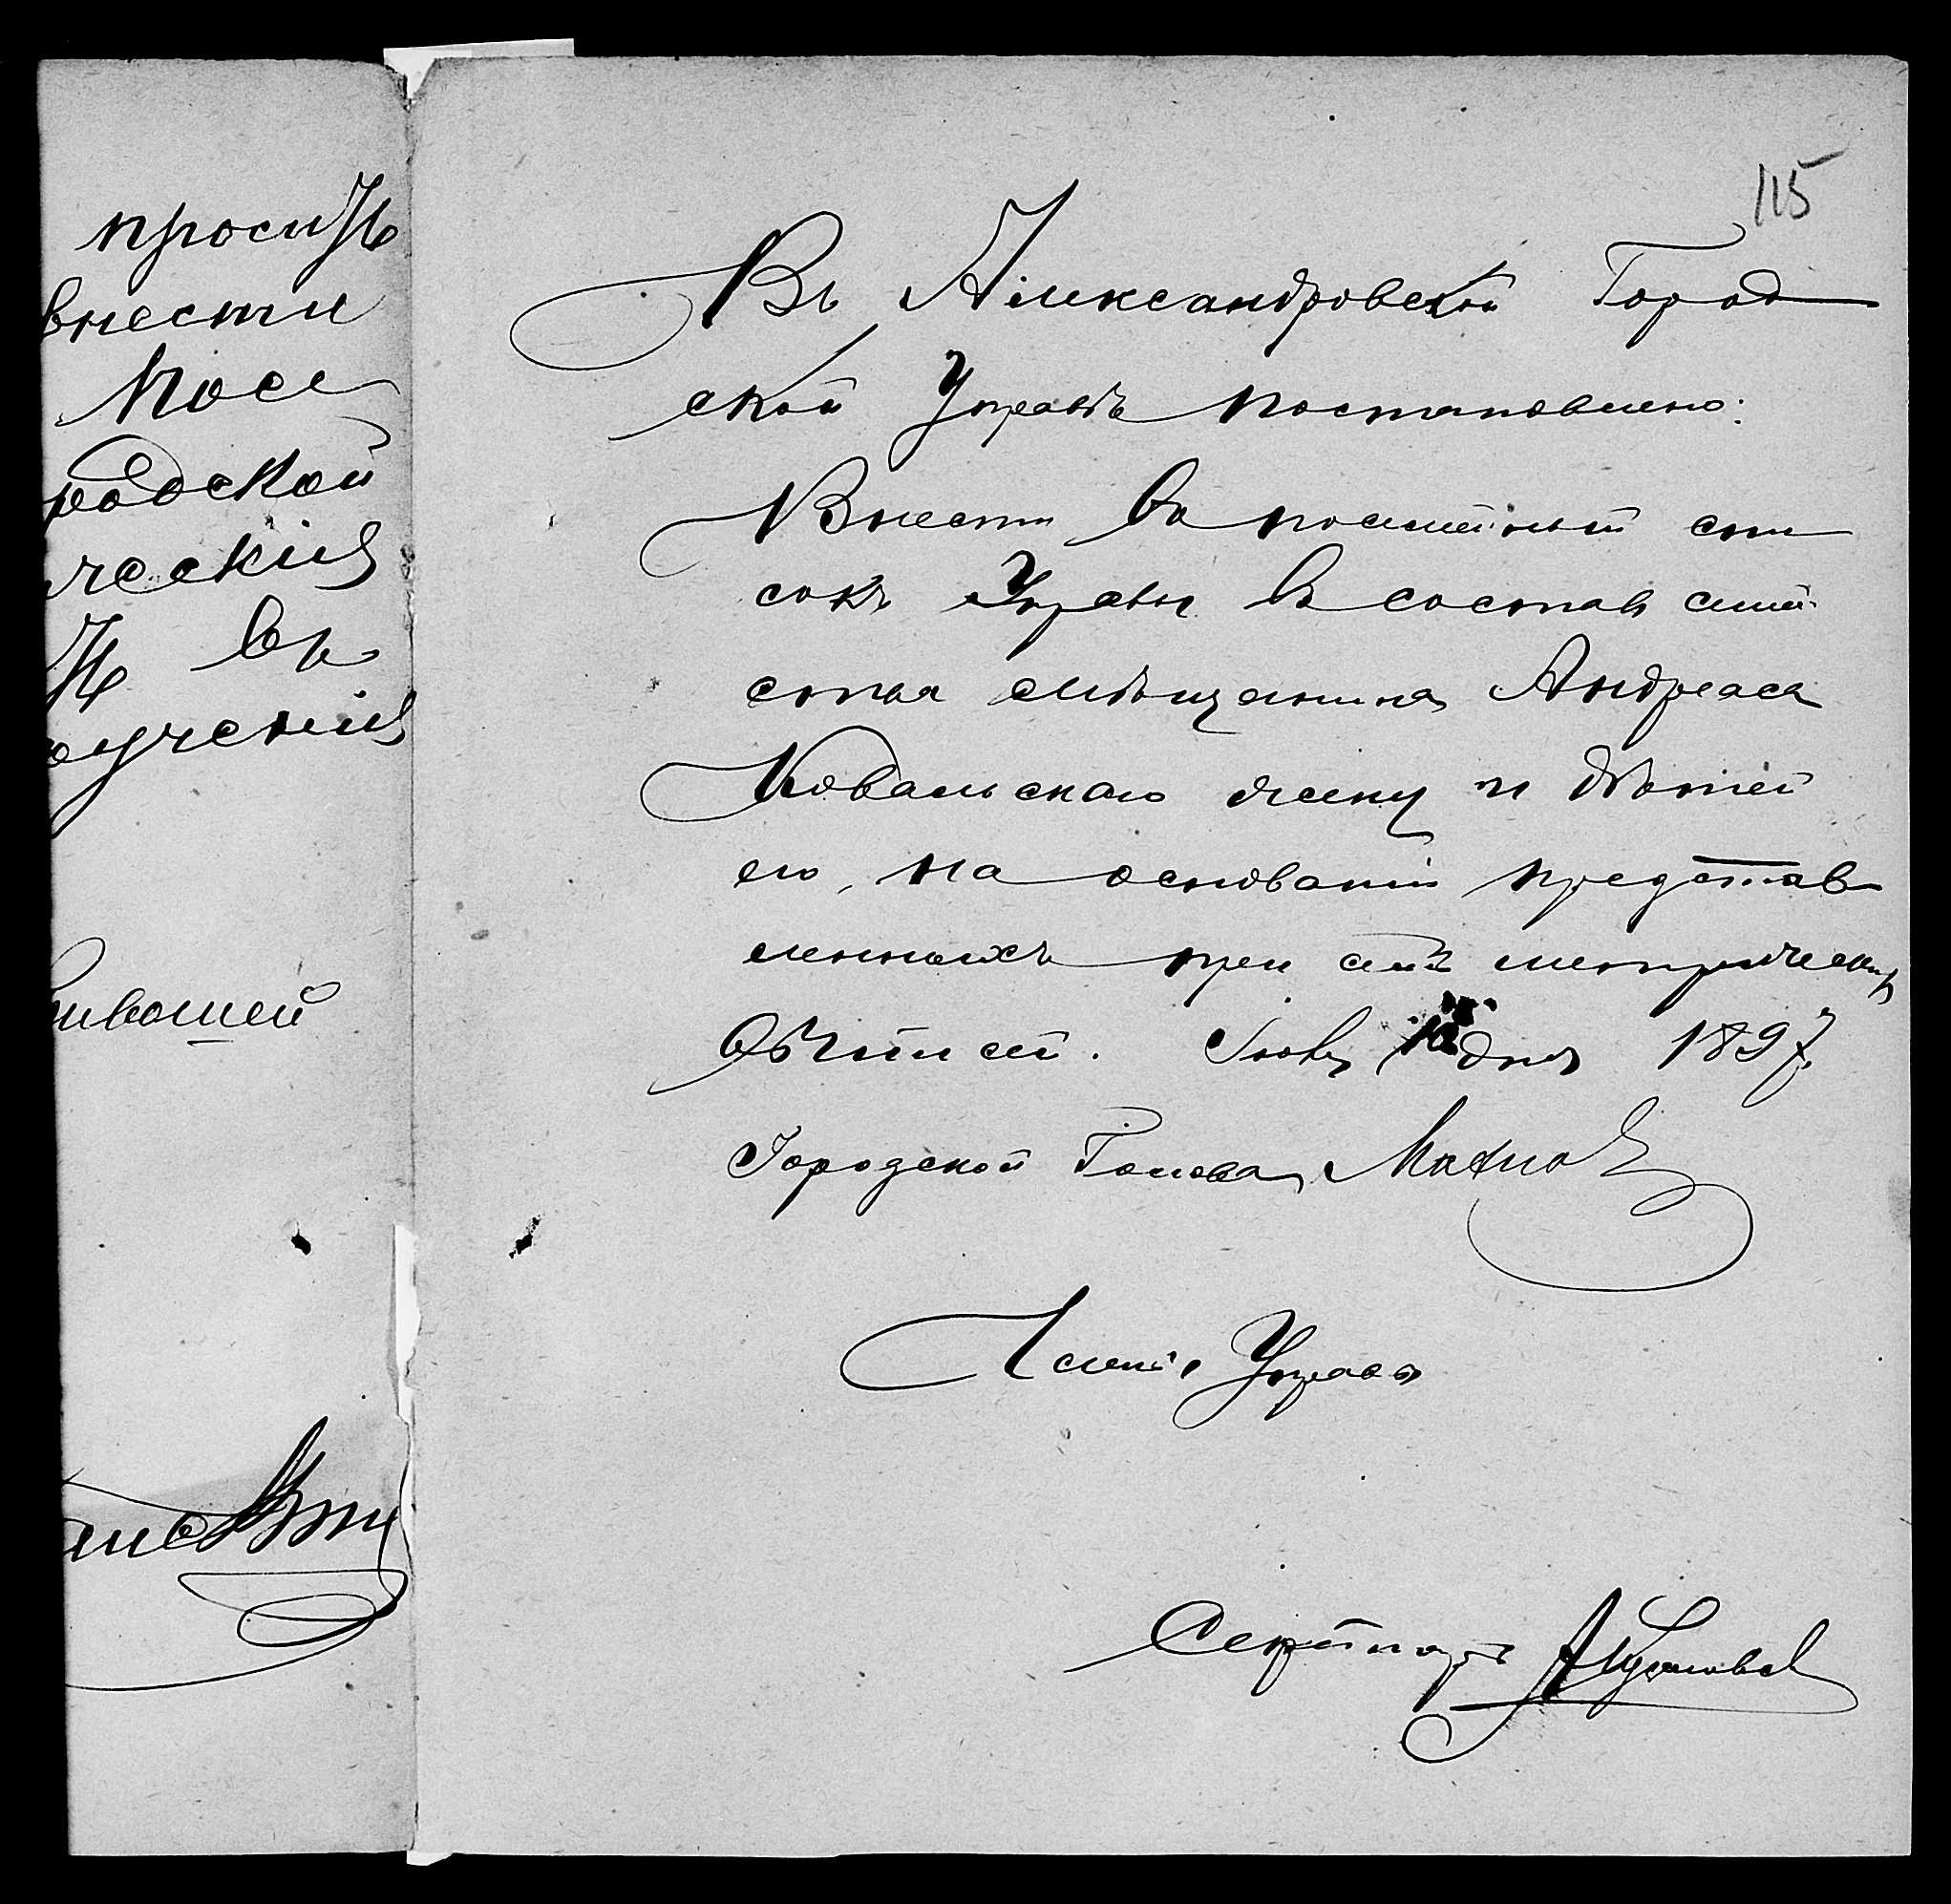 проситъ
внести
посе
родской
ческия
въ
учения
ившей
115
Въ Александровской Город
ской Управѣ постановлено:
Внести въ посемейный спи
сокъ Управы въ составъ семей
ства мѣщанина Андреаса
Ковальскаго жену и дѣтей
его, на основании представ
ленныхъ при семъ метрическихъ
выписей. Июня дня 1897.
Городской Голова
Членъ Управы
Секретарь